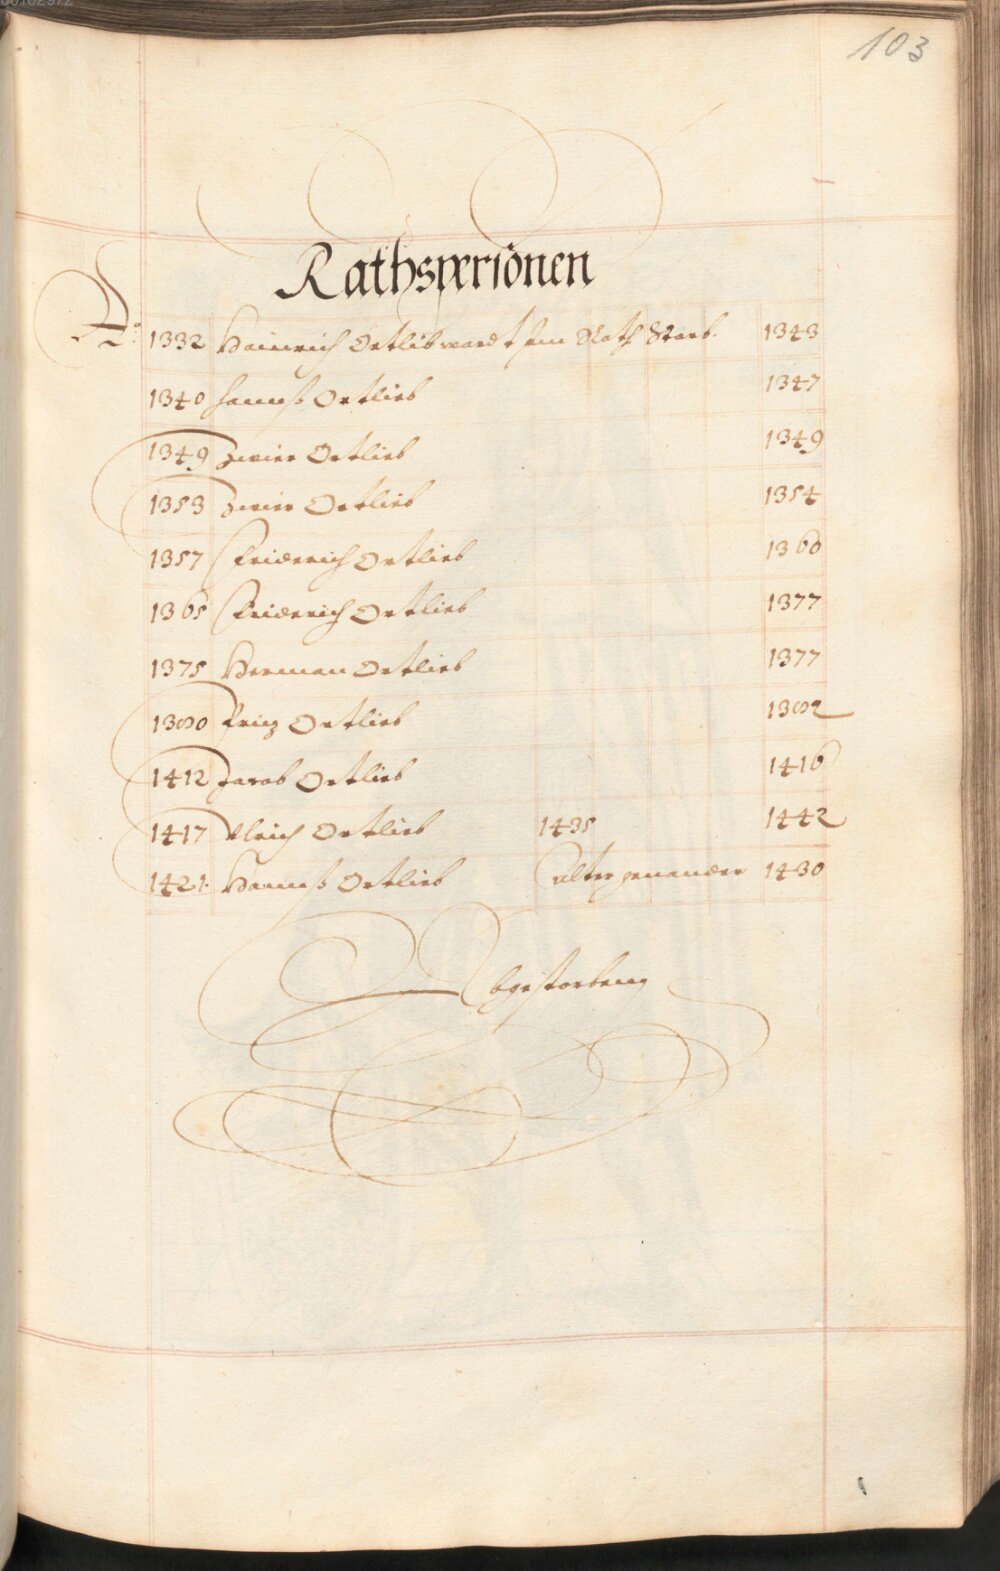 103
Rathspersonen
Aº 1332 Hainrich Ortlib ward im Rath Starb 1343
1340 Hannß Ortlieb 1347
1349 zwier Ortlieb 1349
1353 zwier Ortlieb 1354
1357 Friderich Ortlieb 1360
1365 Friderich Ortlieb 1377
1375 Herman Ortlieb 1377
1380 Fritz Ortlieb 1382
1412 Jacob Ortlieb 1416
1417 Ulrich Ortlieb 1435 1442
1421. Hannß Ortlieb Alter genander 1430
Abgestorben